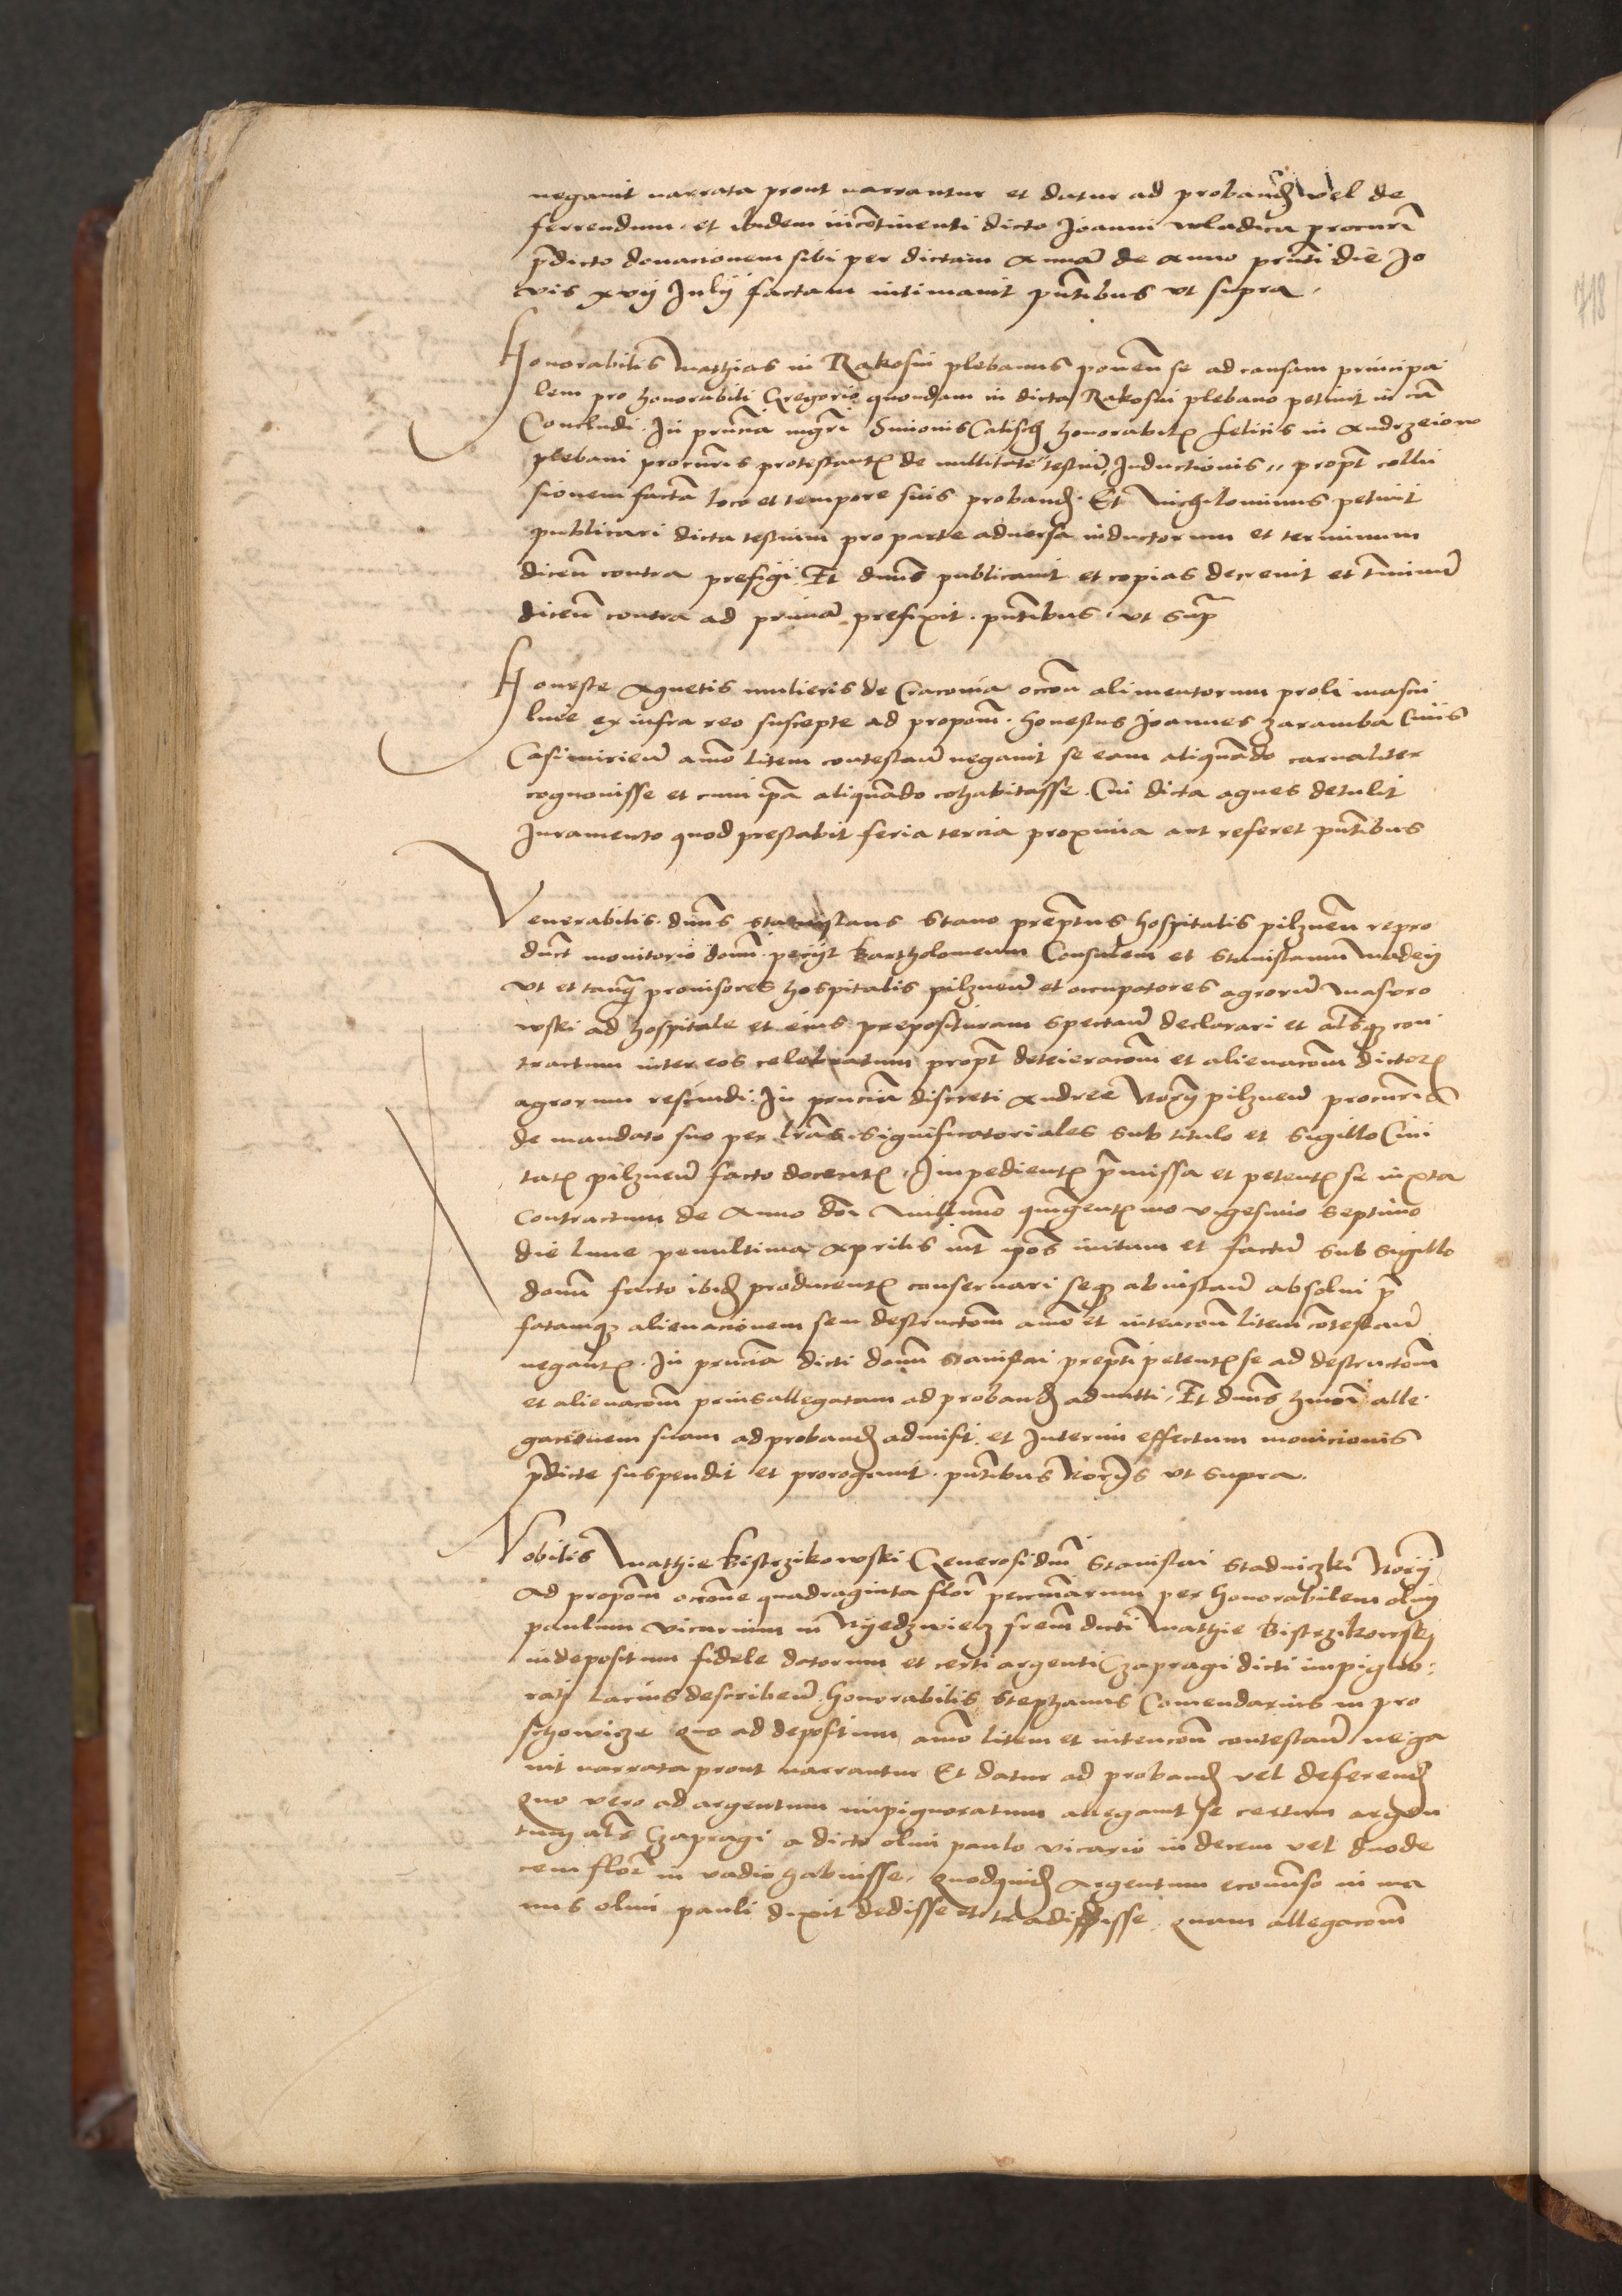 negavit narrata prout narrantur et datur ad proband vel de
ferrendum et ibidem incontinenti dicto Joanni wladica procuri
pdicto donacionem sibi per dictam Annā de Anno pnti die Jo
vis xvij Julij factam intimavit pntibus ut supra
Honorabilis Mathias in Rakosin plebanus ponen se ad causam principa
lem pro honorabili Gregorio quondam in dicta Rakosin plebano petivit in cā
Concludi. In pncia mgri Simonis Calisch honorabilis felicis in Andrzeiow
plebani procuris protestantis de nullitate testiū Inductionis propt collu
sionem factā loco et tempore suis proband. Et Nichilominus petivit
publicari dicta testium pro parte adversa inductorum et terminum
dicen contra prefigi. Et dnus publicavit et copias decrevit et tminū
dicen contra ad primā prefixit. pntibus ut supra
Honeste Agnetis mulieris de Cracovia occon alimentorum proli mascu
line ex infra reo suscepte ad proponm. honestus Joannes zaramba Civis
Casimirien amo litem contestan negavit se eam aliquando carnaliter
cognovisse et cum ipa aliquando cohabitasse. Cui dicta agnes detulit
Juramento quod prestabit feria tercia proxima aut referet pntibus
Venerabilis dnus stanislaus Stano preptus hospitalis pilznen repro
duct monitorio domi pecijt Bartholomeum Consulem et Stanislaum Madey
ut et tanq provisores hospitalis pilznen et occupatores agrorū Masuro
wski ad hospitale et eius preposituram spectan declarari et alsq con
tractum inter eos celebratum propt deterieracom et alienacom dictor
agrorum rescindi. In pncia discreti Andree Norij pilznen procuris
de mandato suo per lras significatoriales sub titulo et sigillo Civi
tatis pilznen facto docentis. Impedientis pmissa et petentis se iuxta
contractum de Anno dni Millimo quigentesimo vigesimo septimo
die lune penultima Aprilis int ipos initum et factū sub sigillo
domi facto ibid producentis conservari seq ab instan absolvi p
fatamq alienacionem seu destructom amo et intencon litem cotestan
negantis. In pncia dicti domi Stanislai prepti petentis se ad destructom
et alienacom prius allegatam ad proband admitti. Et dnus hmoi alle
gacionem suam ad proband admisit et Interim effectum monicionis
pdicte suspendit et prorogavit. pntibus Norijs ut supra.
Nobilis Mathie Bistrzikowski Generosi dni Stanislai Stadniczki Norij
Ad proponm occone quadraginta flor pecuniarum per honorabilem olim
paulum vicarium in Nyedzwiedz frem dicti Mathie Bistrzikowsky
in depositum fidele datorum et certi argenti Czapragi dicti impigno
rati lacius describen honorabilis Stephanus Comendarius in pro
schowicze quo ad depositum amo litem et intencon contestan nega
vit narrata prout narrantur Et datur ad proband vel deferend
Quo vero ad argentum impignoratum allegavit se certum argen
tum als Czapragi a dicto olim paulo vicario in decem vel duode
cem flor in vadio habuisse. Quodquid Argentum econverso in ma
nus olim pauli dixit dedisse et tradidisse. Quam allegacom